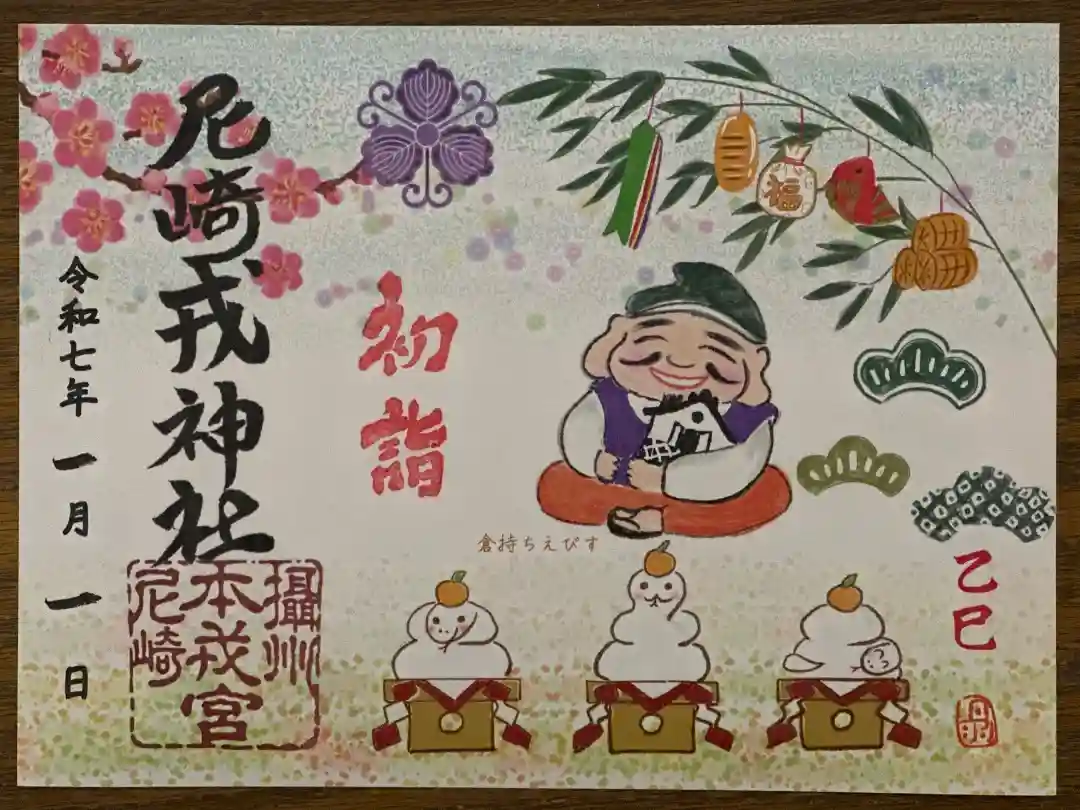 乙巳
福
初詣
倉持ちえびす
尼崎戎神社
攝州
本戎宮
尼崎
令和七年 一月 一日